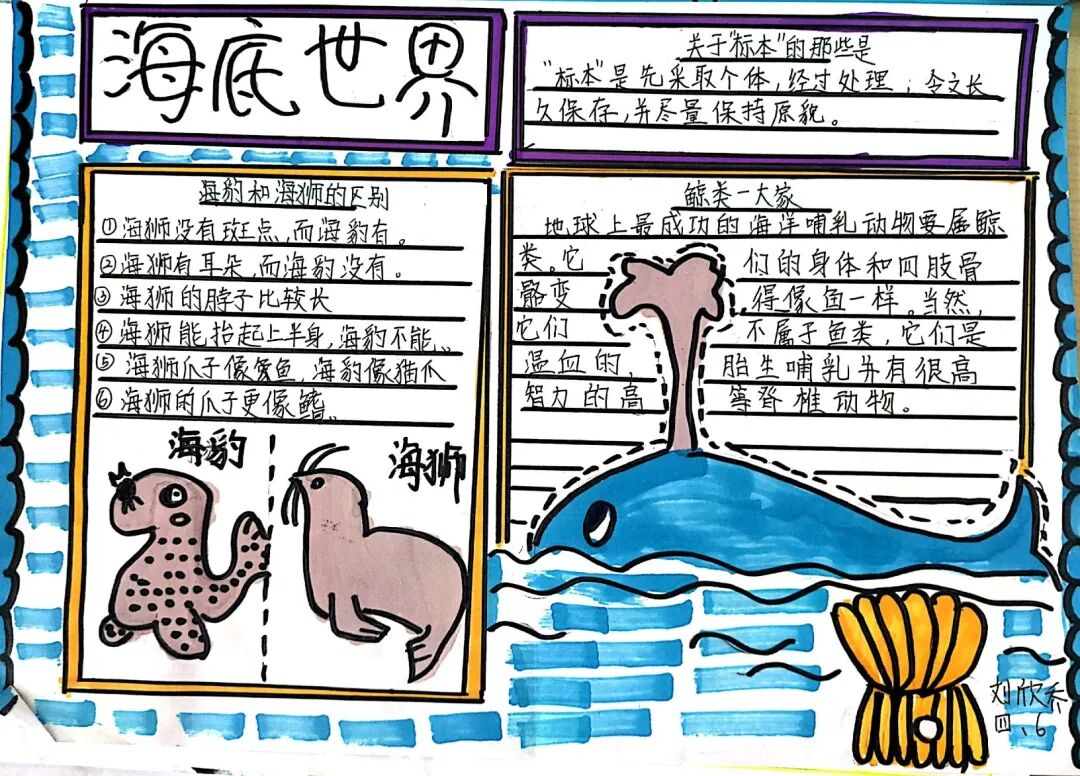 海底世界
关于"标本"的那些是
"标本"是先采取个体,经过处理;令文长
久保存,并尽量保持原貌。
海豹和海狮的区别
①海狮没有斑点,而海豹有。
②海狮有耳朵,而海豹没有。
③海狮的脖子比较长
④海狮能抬起上半身,海豹不能。
⑤海狮爪子像鱼,海豹像猫爪
⑥海狮的爪子更像鳍。
海豹
海狮
鲸类一大家
地球上最成功的海洋哺乳动物要属鲸
类。它们的身体和四肢骨
骼变得像鱼一样。当然,
它们不属于鱼类,它们是
温血的,胎生哺乳并有很高
智力的高等脊椎动物。
刘欣
四、6